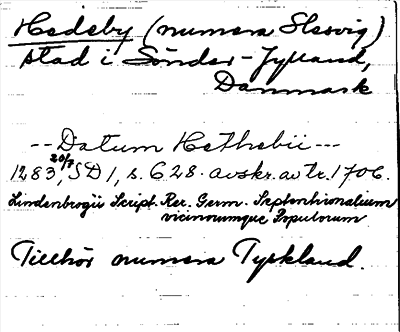 Hedeby (numera Slesvig)
stad i Sönder-Jylland,
Danmark
--Datum Hethebii---
1283 20/7, SD 1, s. 628. avskr. av tr. 1706.
Lindenbrogii Script. Rer. Germ. Septentrionalium
vicinorumque Populorum
Tillhör numera Tyskland.